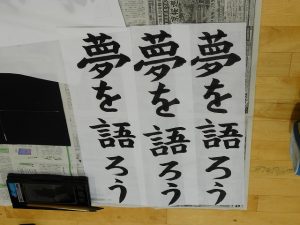 夢を語ろう
夢を語ろう
夢を語ろう